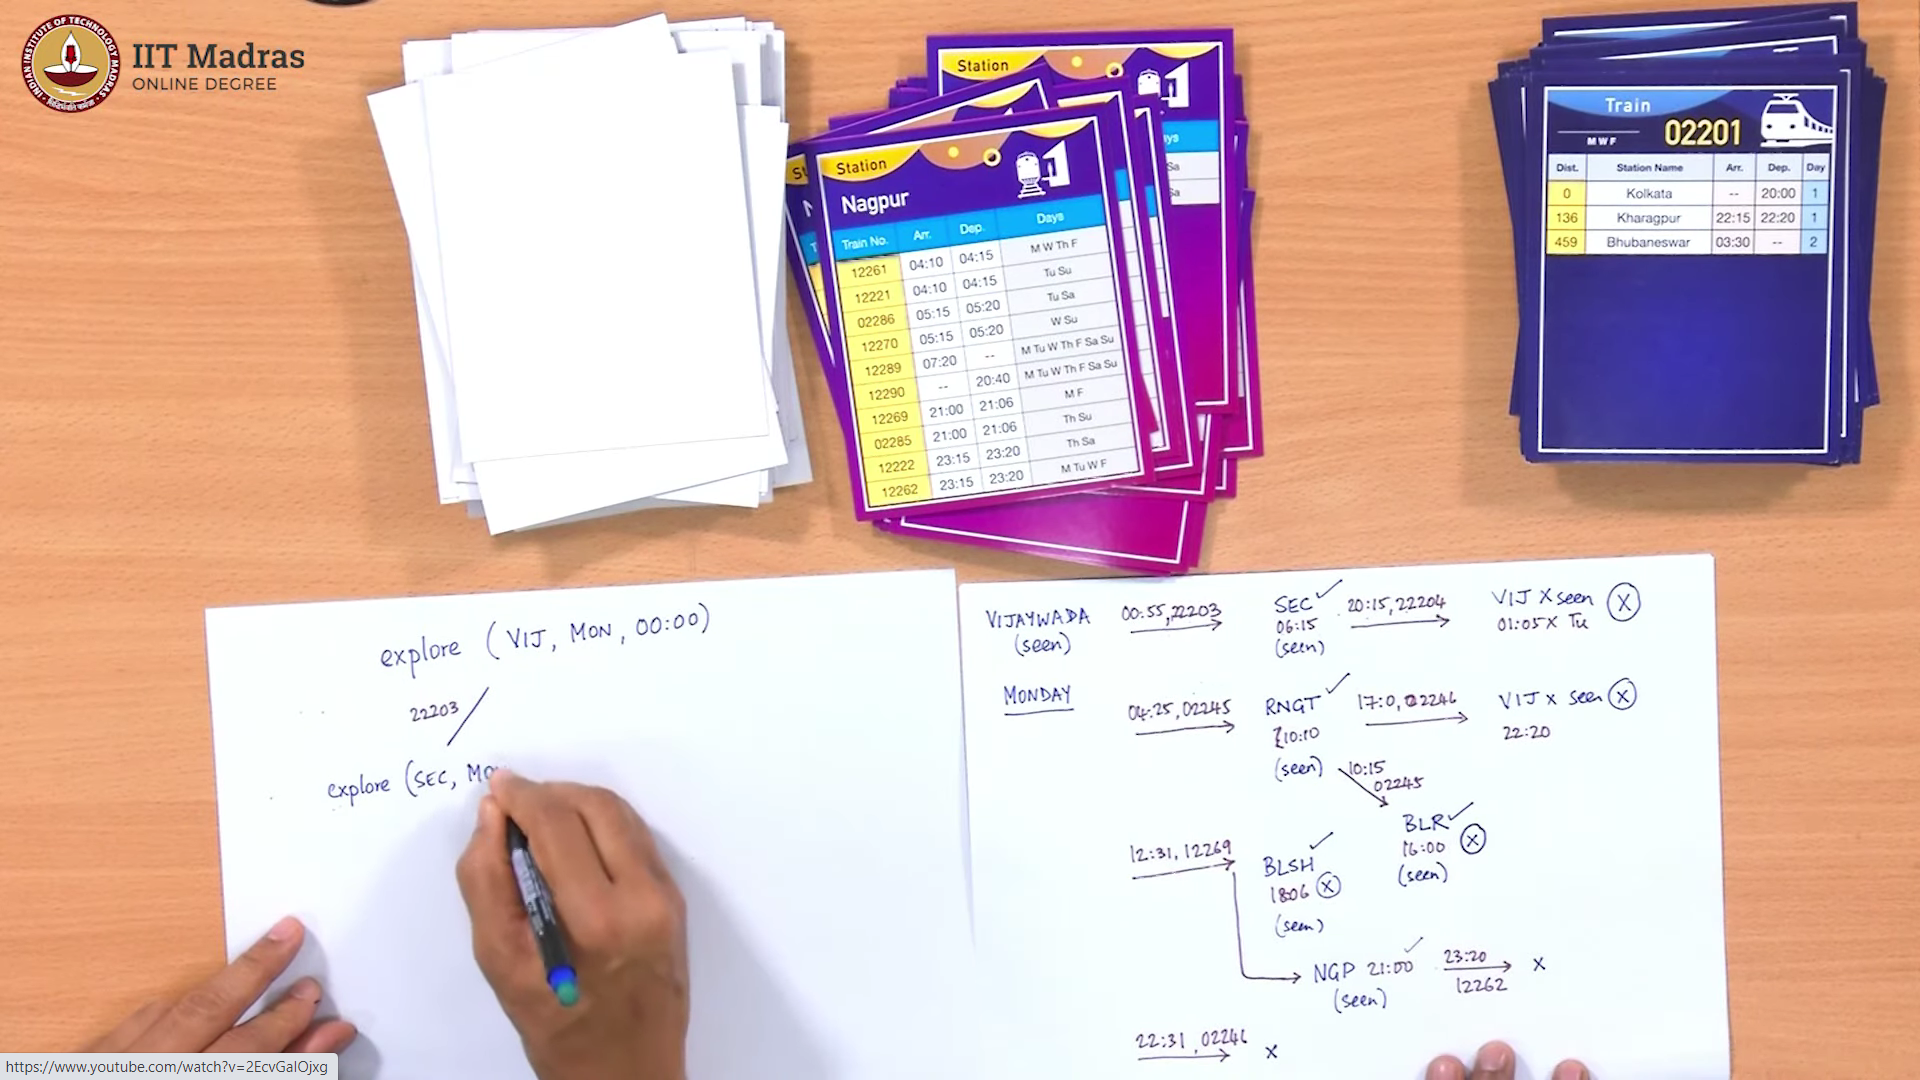 IIT Madras
ONLINE DEGREE
INDIAN INSTITUTE OF TECHNOLOGY MADRAS
Station
Station
Nagpur
Train No. Arr. Dep. Days
12261 04:10 04:15 M W Th F
12221 04:10 04:15 Tu Su
02286 05:15 05:20 Tu Sa
12270 05:15 05:20 W Su
12289 07:20 -- M Tu W Th F Sa Su
12290 -- 20:40 M Tu W Th F Sa Su
12269 21:00 21:06 M F
02285 21:00 21:06 Th Su
12222 23:15 23:20 Th Sa
12262 23:15 23:20 M Tu W F
Train
M W F 02201
Dist. Station Name Arr. Dep. Day
0 Kolkata -- 20:00 1
136 Kharagpur 22:15 22:20 1
459 Bhubaneswar 03:30 -- 2
explore (VIJ, MON, 00:00)
22203
explore (SEC, MO
VIJAYWADA 00:55, 22203 SEC 20:15, 22204 VIJ X seen X
(seen) 06:15 01:05 X Tu
(seen)
MONDAY 04:25, 02245 RNGT 17:0, 02246 VIJ X seen X
10:10 22:20
(seen) 10:15
02245
BLR
16:00 X
(seen)
12:31, 12269 BLSH
1806 X
(seen)
NGP 21:00 23:20 X
(seen) 12262
22:31, 02246 X
https://www.youtube.com/watch?v=2EcvGalOjxg